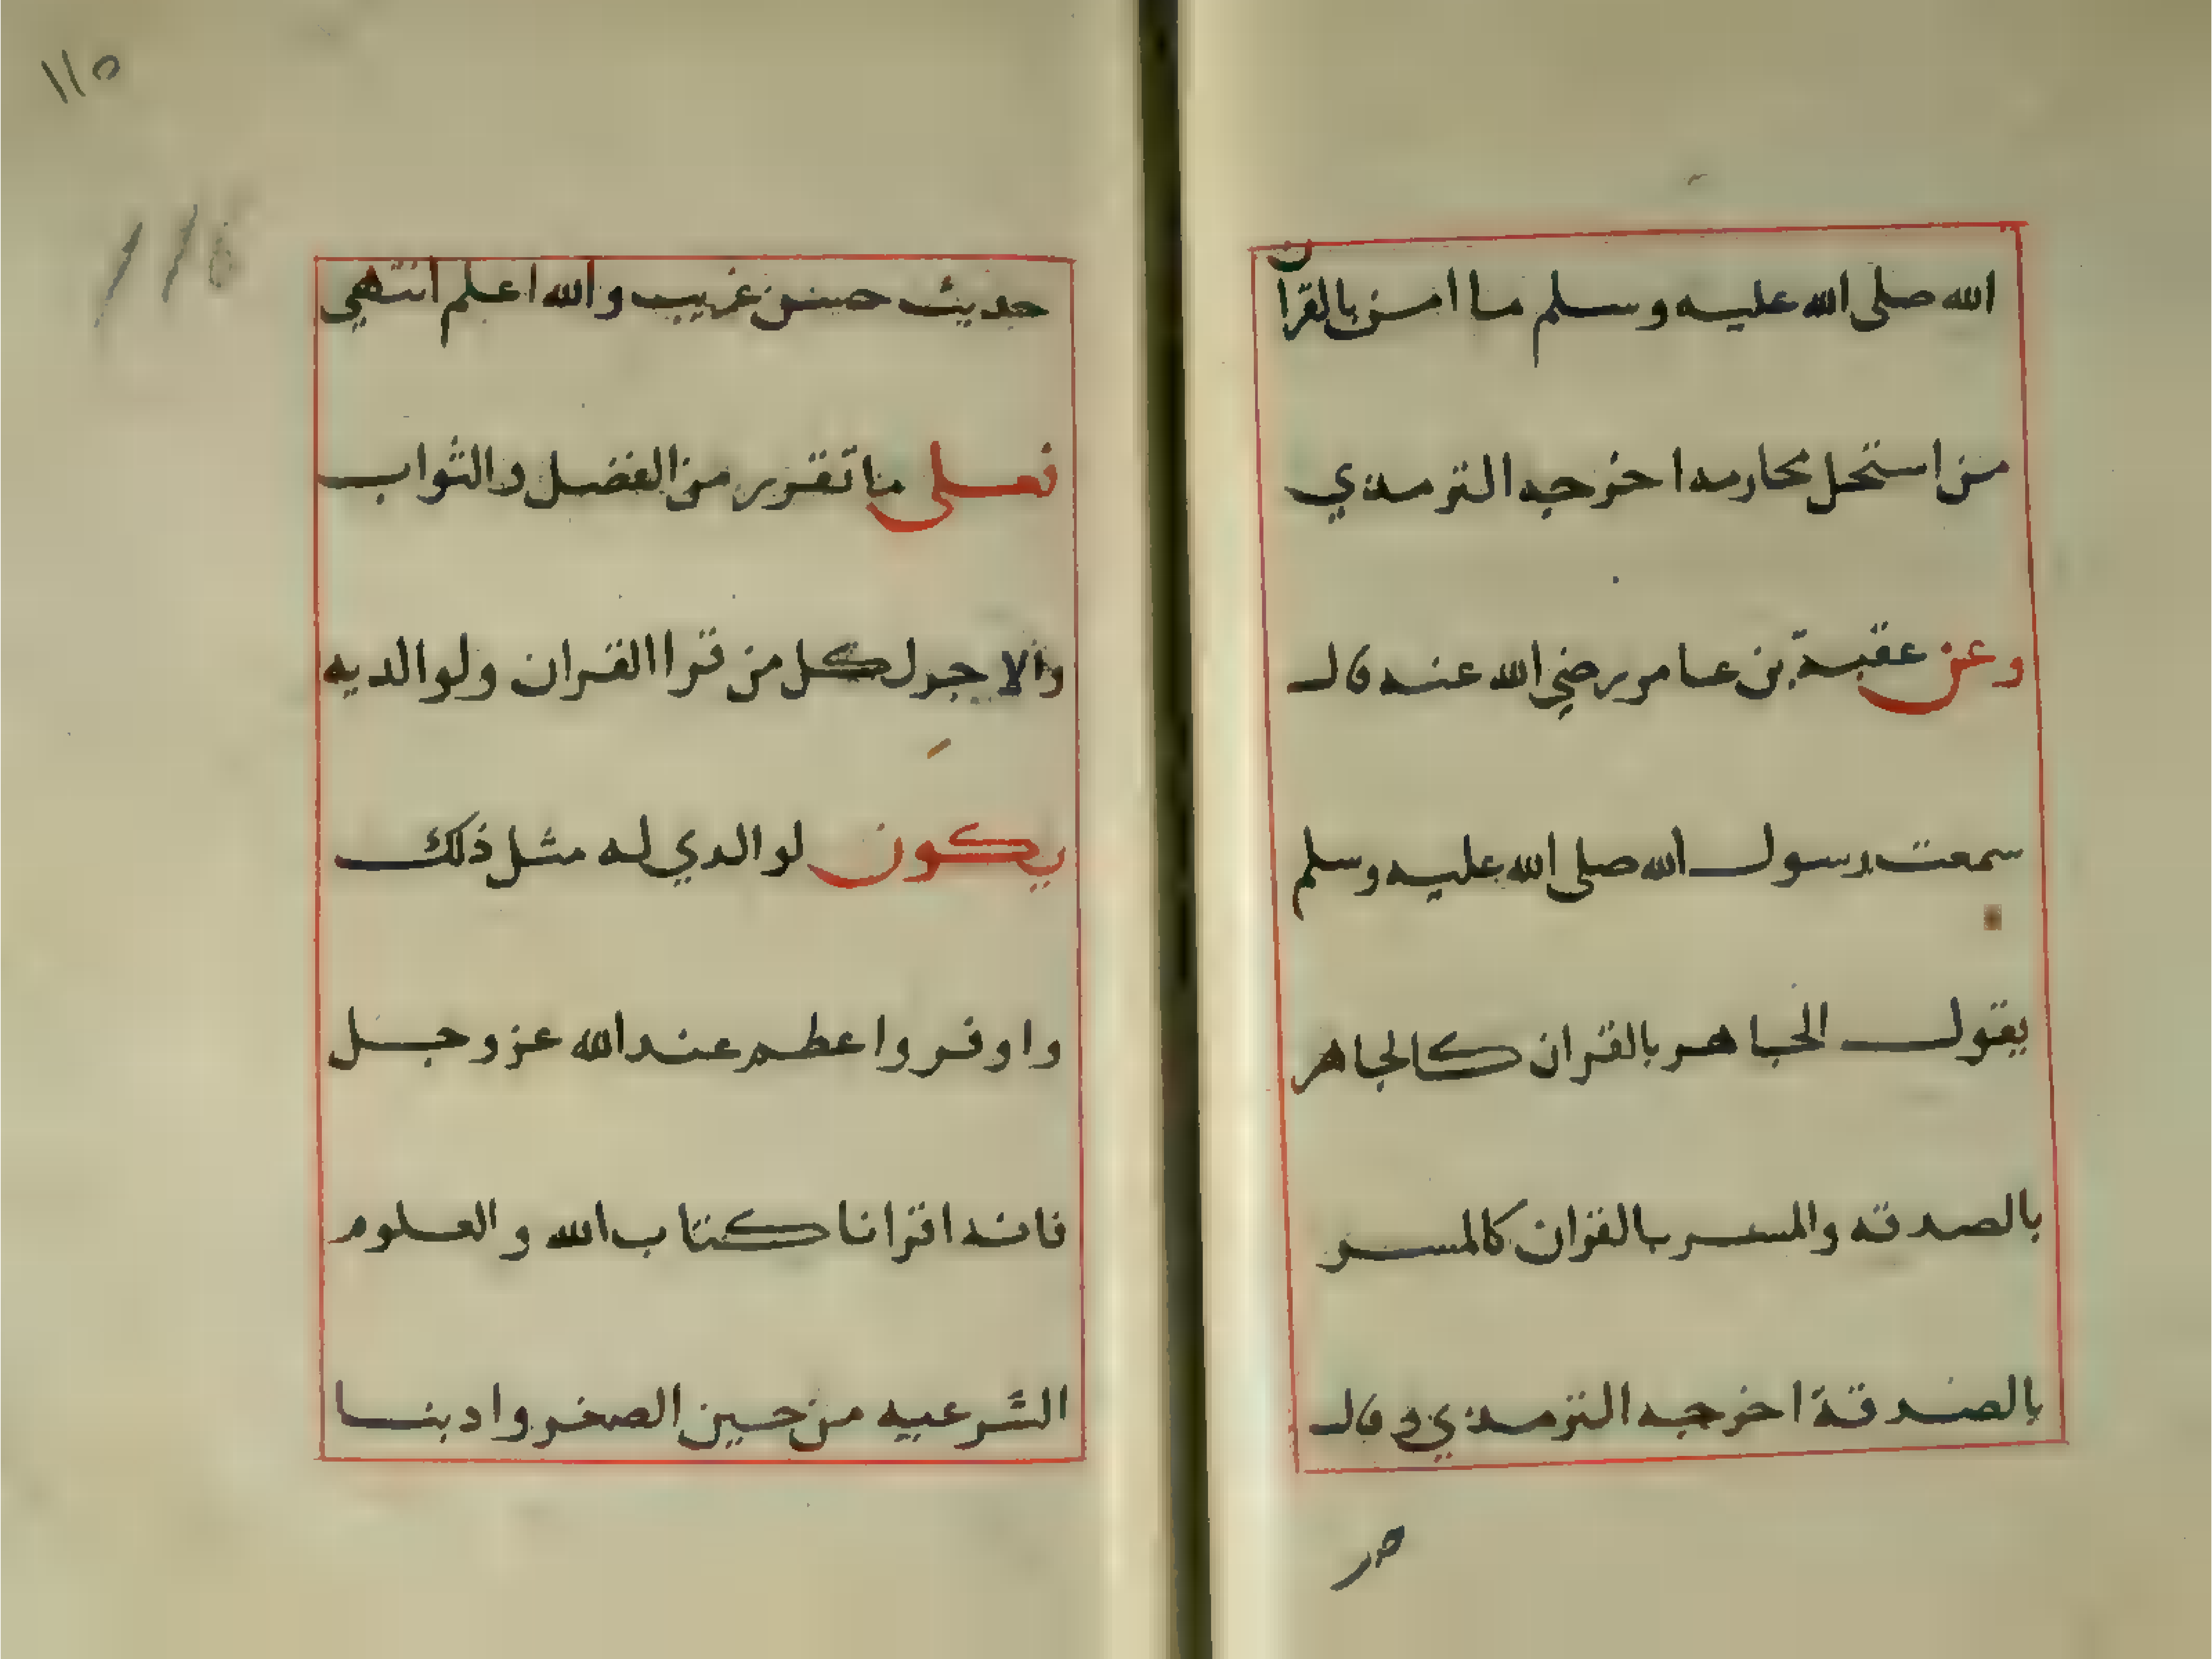 الله صلى الله عليه وسلم ما امن بالقران
من استحل محارمه اخرجه الترمذي
وعن عقبة بن عامر رضي الله عنه قال
سمعت رسول الله صلى الله عليه وسلم
يقول الجاهر بالقران كالجاهر
بالصدقه والمسر بالقران كالمسر
بالصدقة اخرجه الترمذي وقال
١١٥
حديث حسن غريب والله اعلم انتهى
فعلى ما تقرر من الفضل والثواب
والاجر لكل من قرا القران ولوالديه
يكون لوالدي له مثل ذلك
واوفر واعظم عند الله عز وجل
فانه اقرانا كتاب الله والعلوم
الشرعيه من حين الصغر وادبنا